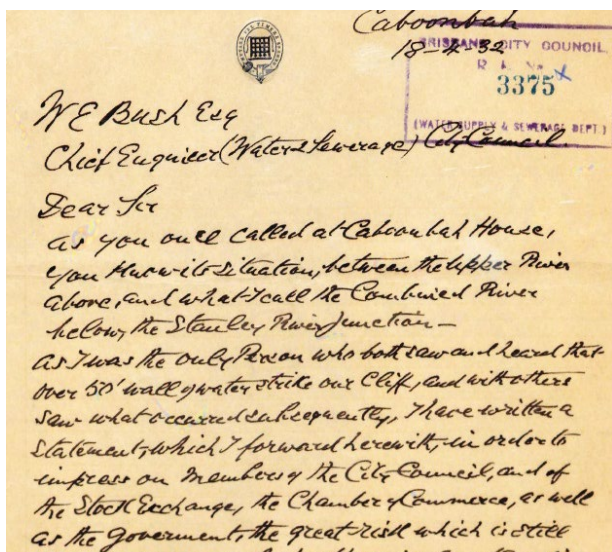 Caboonbah
18-4-32
BRISBANE CITY COUNCIL
R. No.
3375
(WATER SUPPLY & SEWERAGE DEPT.)
W E Bush Esq
Chief Engineer (Water & Sewerage) City Council.
Dear Sir
As you once called at Caboonbah House,
you know its situation, between the Upper River
above, and what I call the Combined River
below, the Stanley River Junction —
As I was the only Person who both saw and heard that
over 50' wall of water strike our Cliff, and with others
saw what occurred subsequently, I have written a
statement, which I forward herewith, in order to
impress on Members of the City Council, and of
the Stock Exchange, the Chamber of Commerce, as well
as the Goverment, the great risk which is still